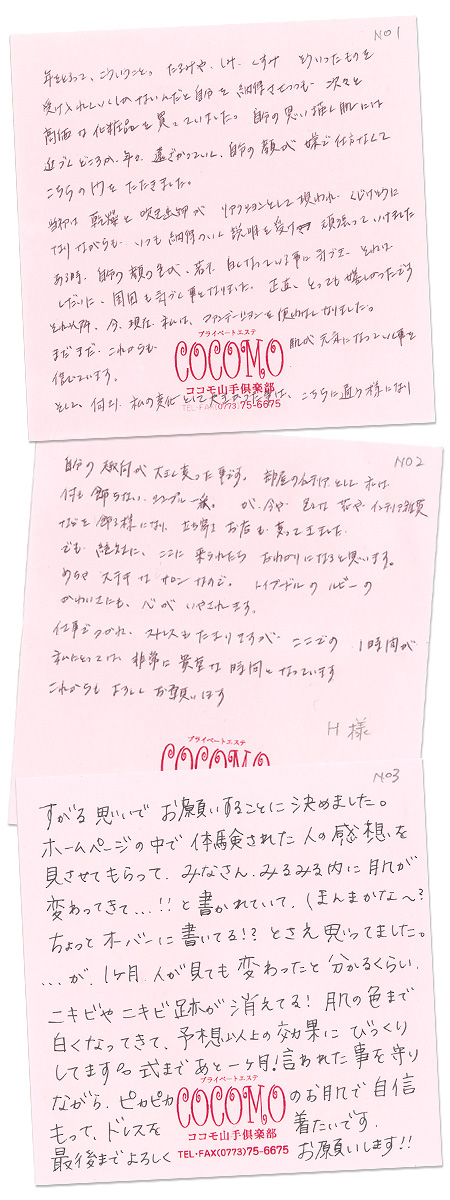 NO1
年をとるって、こういうこと。たるみや、しみ、くすみ そういったものを
受け入れしかないんだと自分を納得させつつも 次々と
高価な化粧品を買っていました。自分の思い描く肌には
近づくどころか、年々遠ざかっていく、自分の顔が嫌で仕方なくて
こちらの門をたたきました。
当初は乾燥と吹き出物がリアクションとして現われ、くじけそうに
なりながらも、いつも納得のいく説明を受け 頑張っていけました
ある時、自分の顔の色が、若干 白くなっている事に気づき、それは
しだいに、周囲も気づく事となりました。正直、とっても嬉しかったです
それ以降、今現在、私は、ファンデーションを使わなくなりました。
まだまだ、これからも 肌が元気になっていく事を
信じています。
プライベートエステ
COCOMO
ココモ山手倶楽部
TEL・FAX(0773)75-6675
そして、何より、私の変化として大きかった事は、こちらに通う様になり
NO2
自分の趣向が大きく変った事です。部屋のインテリアとして私は
何も飾らない、シンプル一筋。が、今や 色んな花やインテリア雑貨
などを飾る様になり、立ち寄るお店も変ってきました。
でも 絶対に、ここに来られたら おわかりになると思います。
めちゃ ステキな サロンなので。トイプードルの ルビーの
かわいさにも、心が いやされます。
仕事でつかれ、ストレスもたまりますが、ここでの 1時間が
私にとっては、非常に貴重な時間となっています
これからもよろしくお願いします
H様
プライベートエステ
COCOMO
NO3
すがる思いで お願いすることに決めました。
ホームページの中で 体験された 人の感想を
見させてもらって、みなさん、みるみる内に 肌が
変わってきて…!! と書かれていて、(ほんまかな〜?
ちょっとオーバーに書いてる!? とさえ思ってました。
…が、1ヶ月、人が見ても 変わったと 分かるくらい、
ニキビや ニキビ跡が 消えてる! 肌の色まで
白くなってきて、予想以上の効果に びっくり
してます。式まで あと一ヶ月! 言われた事を守り
ながら、ピカピカ のお肌で 自信
もって、ドレスを 着たいです。
最後までよろしく お願いします!!
プライベートエステ
COCOMO
ココモ山手倶楽部
TEL・FAX(0773)75-6675